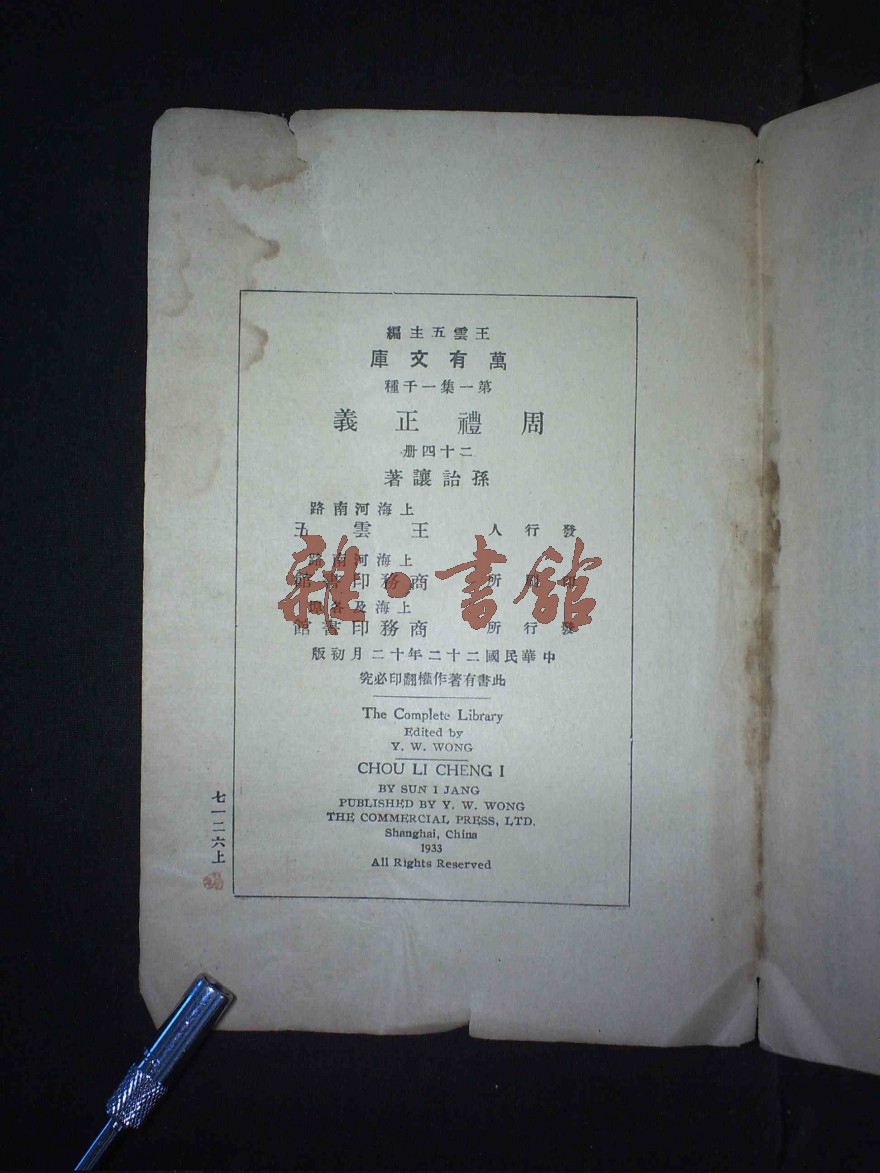 王雲五主編
萬有文庫
第一集一千種
周禮正義
二十四册
孫詒讓著
上海河南路
發行人 王雲五
上海河南路
印刷所 商務印書館
上海及各埠
發行所 商務印書館
中華民國二十二年十二月初版
此書有著作權翻印必究
The Complete Library
Edited by
Y. W. WONG
CHOU LI CHENG I
BY SUN I JANG
PUBLISHED BY Y. W. WONG
THE COMMERCIAL PRESS, LTD.
Shanghai, China
1933
All Rights Reserved
七一二六上
雜·書館